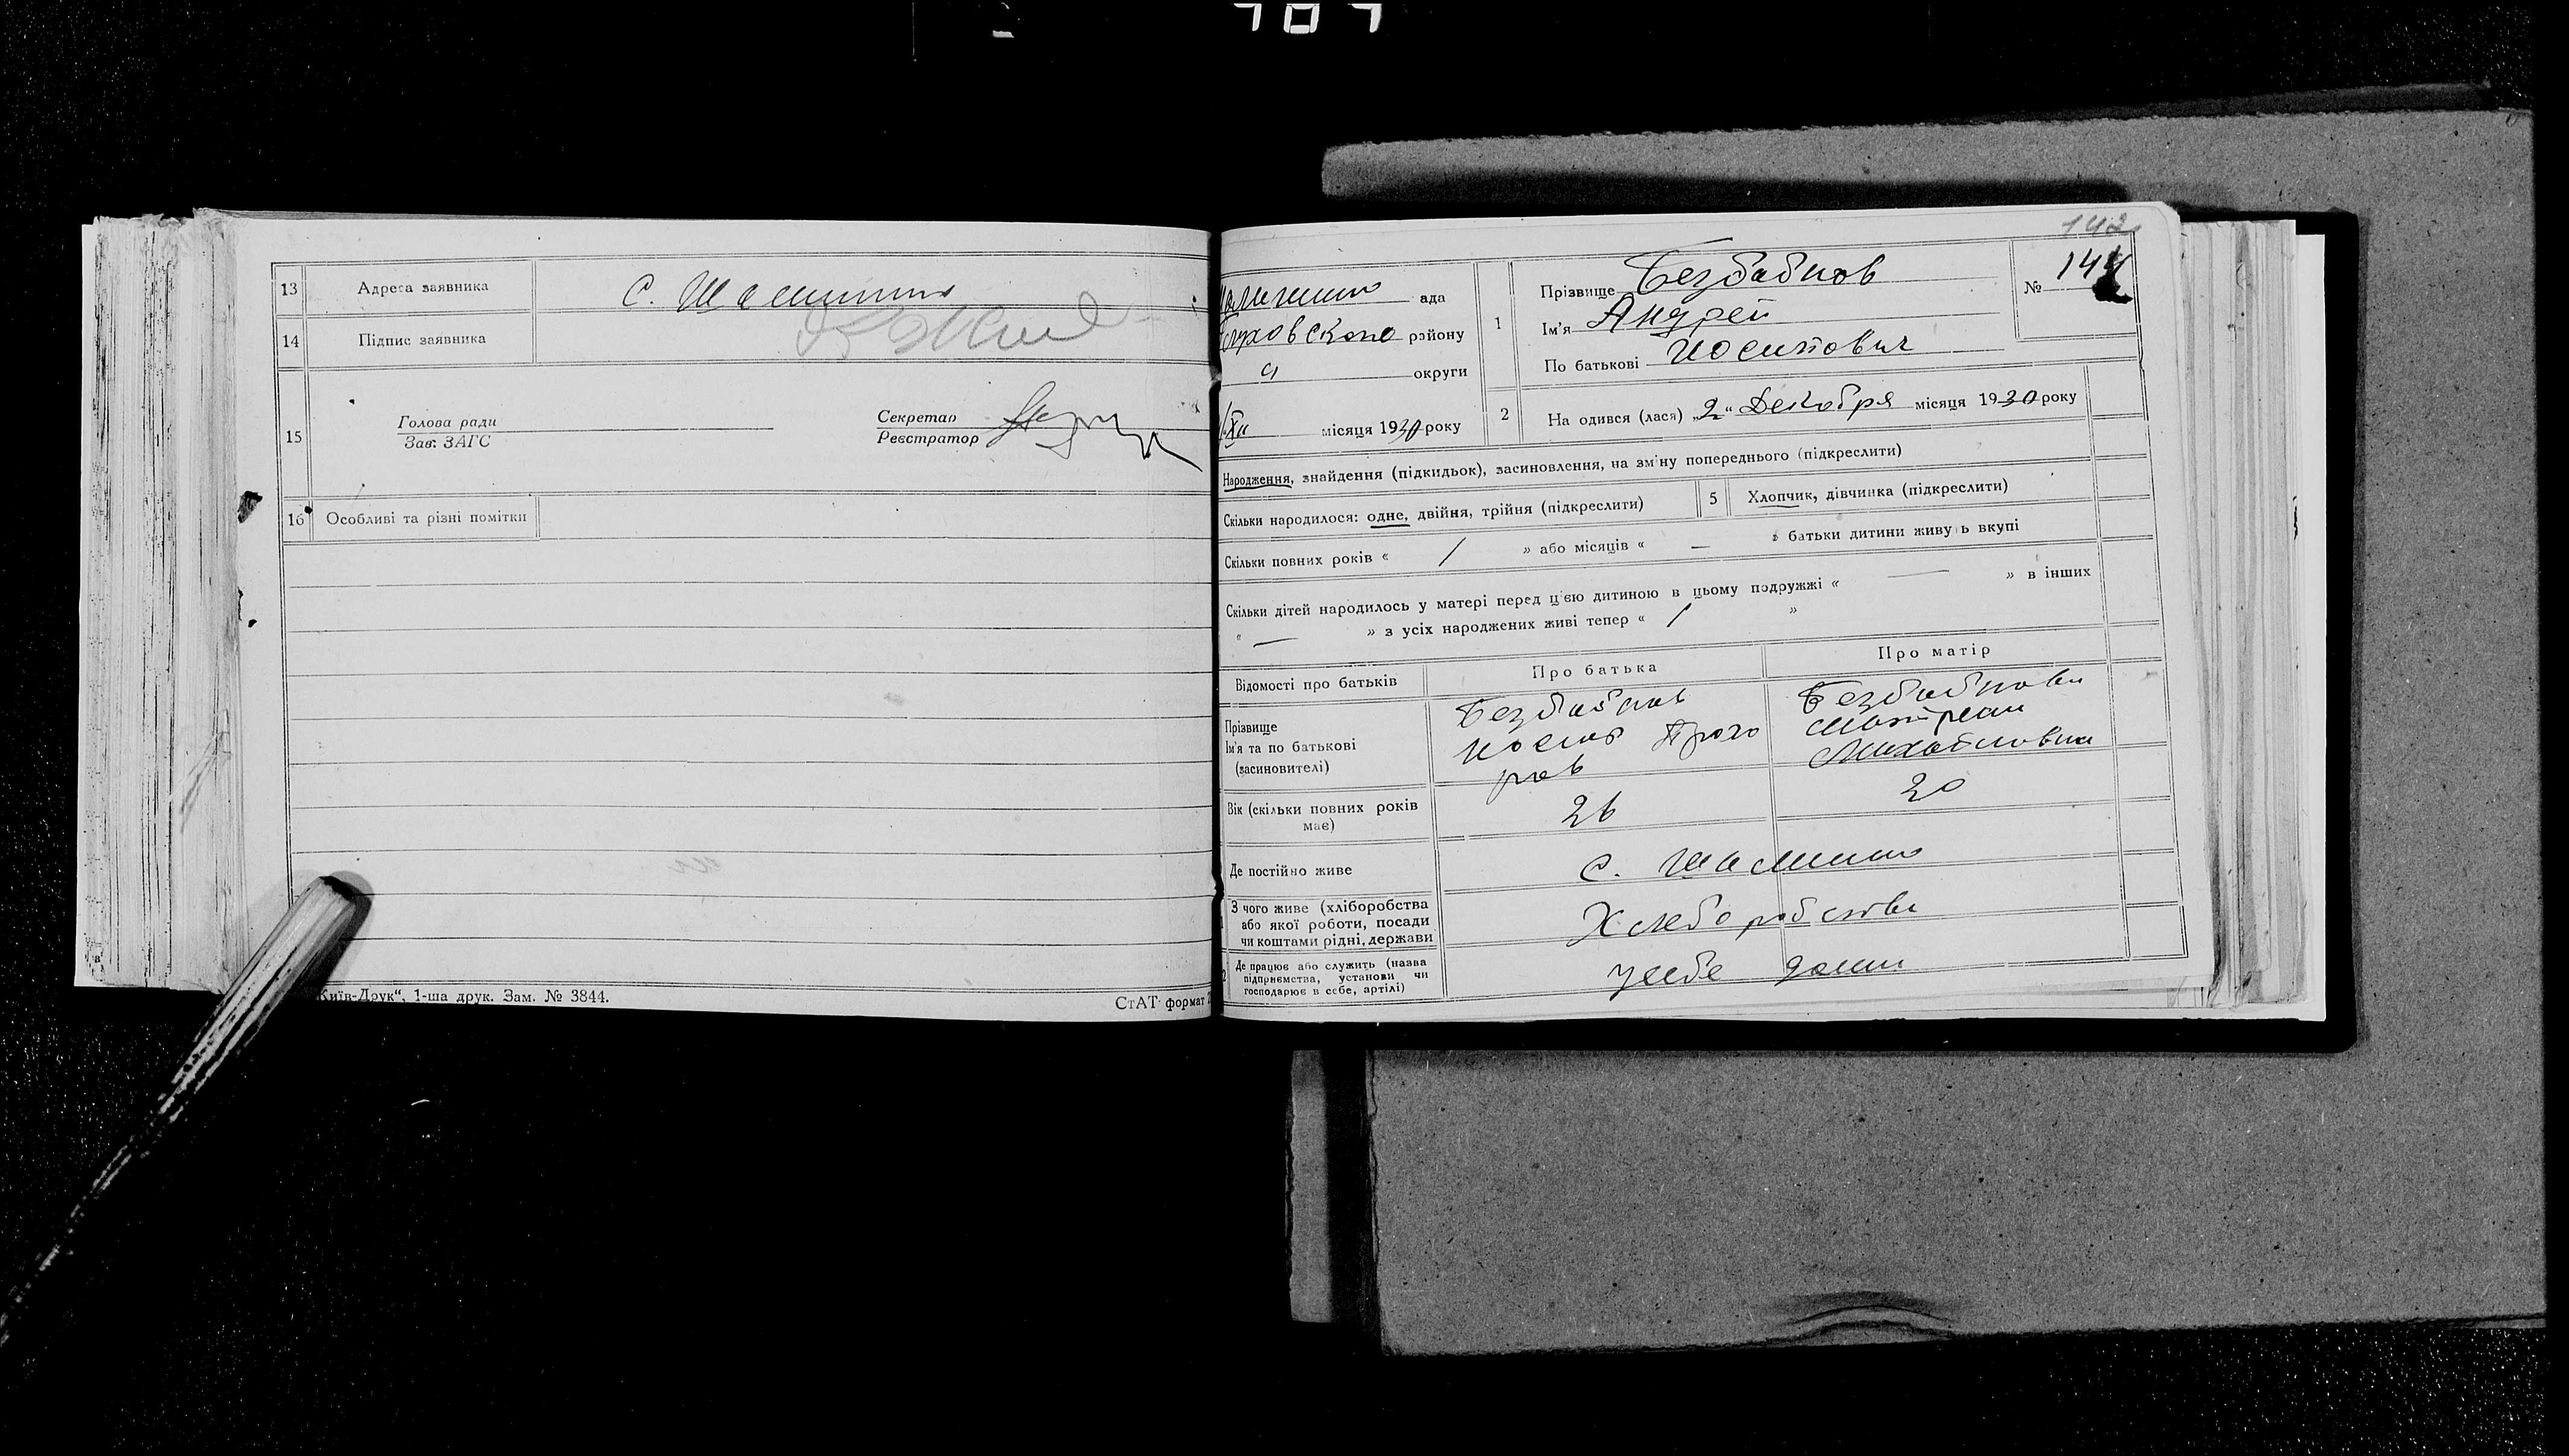 13 Адреса заявника С. Шалигино
14 Підпис заявника
15 Голова ради Секретар
Зав. ЗАГС Реєстратор
16 Особливі та різні помітки
„Київ-Друк“, 1-ша друк. Зам. № 3844. СтАТ формат
142
ада
району
а округи
XII місяця 1930 року
1 Прізвище Безбабнов
Ім'я Андрей
По батькові Иосипович
№ 144
2 На одився (лася) „2“ Декабря місяця 1930 року
Народження, знайдення (підкидьок), засиновлення, на зміну попереднього (підкреслити)
Скільки народилося: одне, двійня, трійня (підкреслити) 5 Хлопчик, дівчинка (підкреслити)
Скільки повних років « / » або місяців « — » батьки дитини живуть вкупі
Скільки дітей народилось у матері перед цією дитиною в цьому подружжі « — » в інших
« — » з усіх народжених живі тепер « / »
Відомості про батьків Про батька Про матір
Прізвище Безбабнов Безбабнова
Ім'я та по батькові Иосип Прохо Мотреа
(засиновителі) ров Михайловна
Вік (скільки повних років має) 26 20
Де постійно живе С. Шалигино
З чого живе (хліборобства
або якої роботи, посади Хлеборобства
чи коштами рідні, держави
Де працює або служить (назва
підприємства, установи чи у себе дома
господарює в себе, артілі)